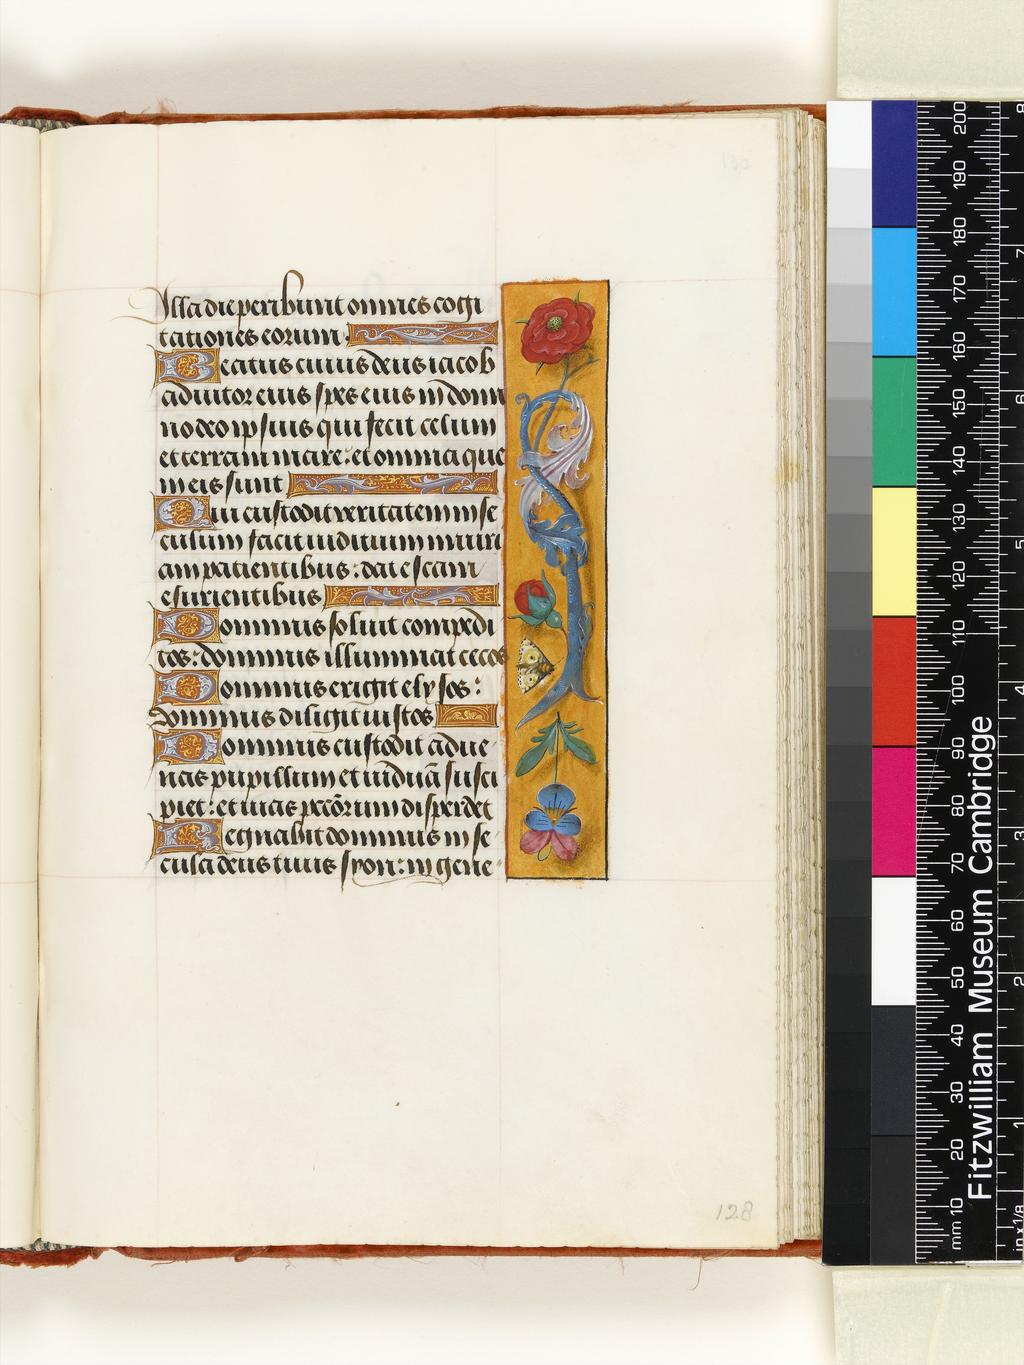 130
Illa die peribunt omnes cogi
tationes eorum.
Beatus cuius deus iacob
adiutor eius spes eius in domi
no deo ipsius qui fecit celum
et terram mare: et omnia que
in eis sunt
Qui custodit veritatem in se
culum facit iudicium iniuri
am patientibus: dat escam
esurientibus
Dominus soluit compedi
tos: dominus illuminat cecos
Dominus erigit elysos:
dominus diligit iustos
Dominus custodit adue
nas pupillum et viduā susci
piet: et vias pccōrum disperdet
Regnabit dominus in se
cula deus tuus syon: in gene
128
Fitzwilliam Museum Cambridge
mm 10 20 30 40 50 60 70 80 90 100 110 120 130 140 150 160 170 180 190 200
in x 1/8 1 2 3 4 5 6 7 8